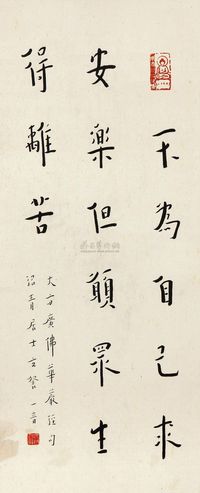 不為自己求
安樂但願眾生
得離苦
大方廣佛華嚴經句
沼青居士玄鬢一音